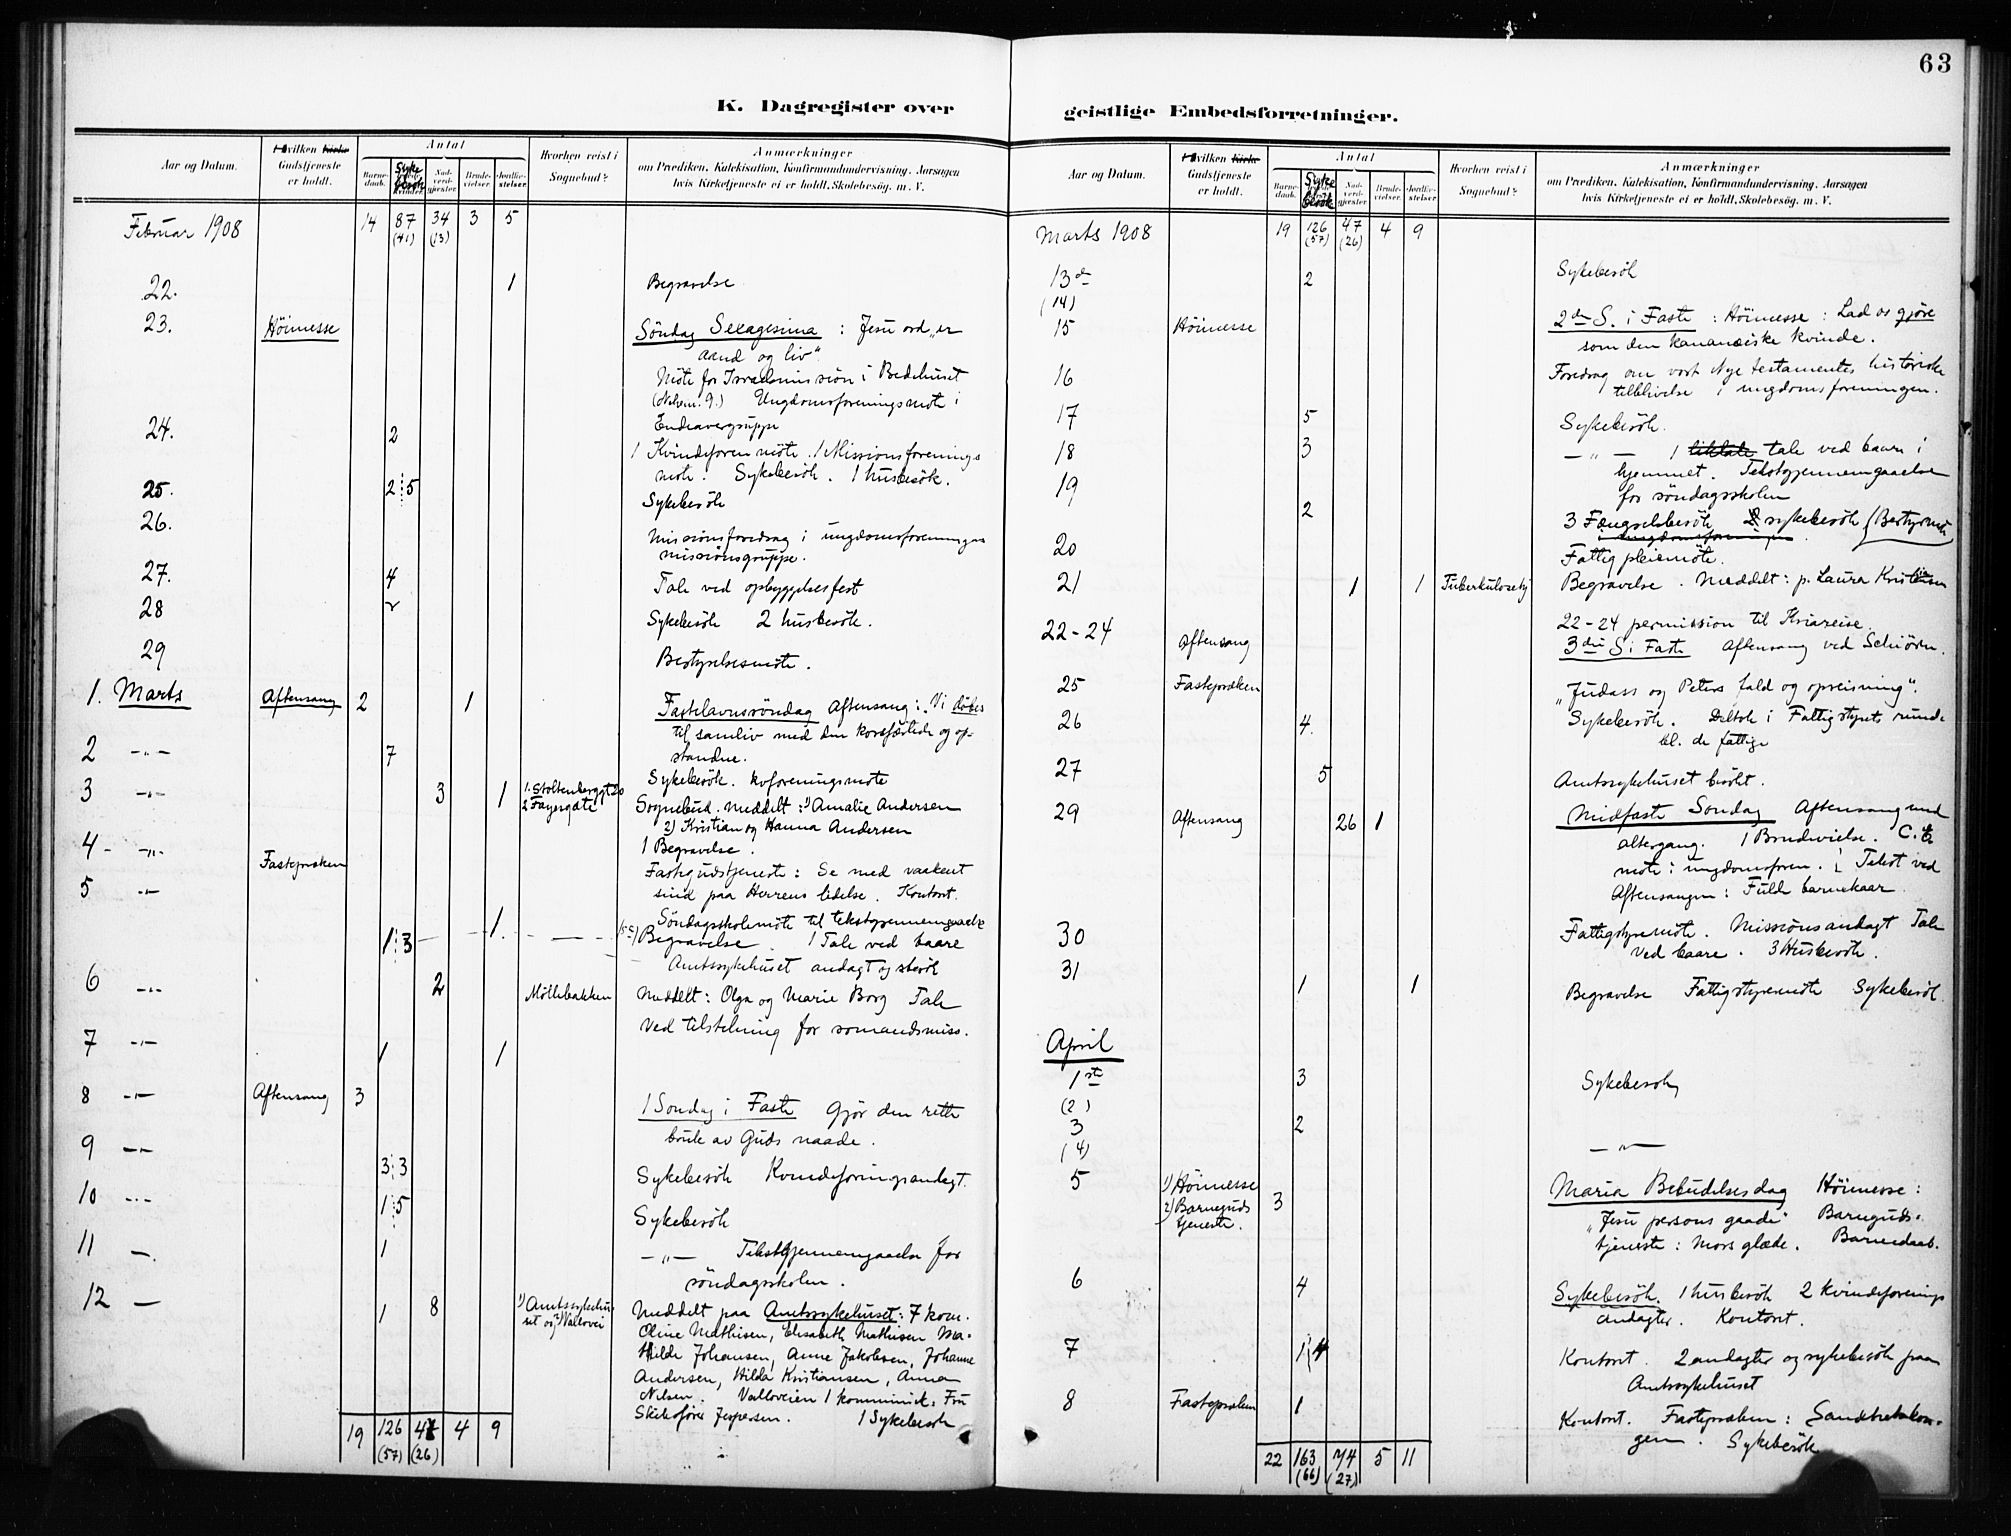 63
K. Dagregister over geistlige Embedsforretninger.
Aar og Datum.
Hvilken Kirke Gudstjeneste er holdt.
Antal
Barnedaab.
Sykebesök
Nadverdgjester.
Brudevielser.
Jordfæstelser.
Hvorhen reist i Sognebud?
Anmærkninger
om Prædiken, Katekisation, Konfirmandundervisning, Aarsagen
hvis Kirketjeneste ei er holdt, Skolebesøg. m. V.
Februar 1908 14 87 34 3 5
(41) (13)
22. 1 Begravelse
23. Höimesse Söndag Sexagesima : Jesu ord „er
aand og liv".
Möte for Israelsmission i Bedehuset
Ungdomsforeningsmöte i
Endeavergruppe
24. 2 1 Kvindeforen möte. 1 Missionsforenings
möte. Sykebesök. 1 husbesök.
25. 2 5 Sykebesök
26. Missionsforedrag i ungdomsforeningens
missionsgruppe.
27. 4 Tale ved opbyggelsesfest
28 2 Sykebesök 2 husbesök.
29 Bestyrelsesmöte.
1. Marts Aftensang 2 1 Fastelavnssöndag Aftensang: Vi döbes
til samliv med den korsfæstede og op-
standne.
2 -"- 7 Sykebesök. kvforeningsmöte
3 -"- 3 1 1. Stoltenberggt 20
2 Fayesgate Sognebud. meddelt: 1) Amalie Andersen
2) Kristian og Hanna Andersen
1 Begravelse.
4 -"- Fastepræken Fastegudstjeneste: Se med vaakent
sind paa Herrens lidelse. Kontoret.
5 -"- Söndagsskolemöte til tekstgjennemgaaelse
1 3 1. Begravelse. 1 Tale ved baare
Amtssykehuset andagt og besök
6 -"- 2 Möllebakken Meddelt: Olga og Marie Borg Tale
ved tilstelning for sömandsmiss.
7 -"- 1 1
8 -"- Aftensang 3 1 Söndag i Faste Gjör den rette
bruk av Guds naade.
9 -"- 3 3 Sykebesök Kvindeforingsandagt.
10 -"- 1 5 Sykebesök
11 - 1 -"- Tekstgjennemgaaelse for
söndagsskolen.
12 - 1 8 1) Amtssykehu-
set og 2) Vallovei Meddelt paa Amtssykehuset: 7 kom.
Oline Mathisen, Elisabeth Mathisen Ma-
thilde Johansen, Anne Jakobsen, Johanne
Andersen, Hilda Kristiansen, Anna
Nilsen. Valloveien 1 kommunik: Fru
Jespersen. 1 Sykebesök
19 126 47 4 9
(57) (26)
Aar og Datum.
Hvilken Kirke Gudstjeneste er holdt.
Antal
Barnedaab.
Sykebesök
Nadverdgjester.
Brudevielser.
Jordfæstelser.
Hvorhen reist i Sognebud?
Anmærkninger
om Prædiken, Katekisation, Konfirmandundervisning, Aarsagen
hvis Kirketjeneste ei er holdt, Skolebesøg. m. V.
Marts 1908 19 126 47 4 9
(57) (26)
13de 2 Sykebesök
(14)
15 Höimesse 2den S. i Faste : Höimesse : Lad os gjöre
som den kananæiske kvinde.
16 Foredrag om vort Nye testamentes historiske
tilblivelse i ungdomsforeningen.
17 5 Sykebesök.
18 3 -"- 1 liktale tale ved baare i
hjemmet. Tekstgjennemgaaelse
19 for söndagsskolen
2 3 Fængselsbesök 2 sykebesök Bestyrmöte
i Ungdomsforeningen.
20 Fattigpleiemöte.
21 1 1 Tuberkulosehj Begravelse. Meddelt: p. Laura Kristiansen
22-24 Aftensang 22-24 permission til Kriareise.
3die S i Faste Aftensang ved Schiörn.
25 Fastepræken „Judass og Peters fald og opreisning".
26 4. Sykebesök. Deltok i Fattigstyrets runde
bl. de fattige
27 5 Amtssykehuset besökt.
29 Aftensang 26 1 Midfaste Söndag Aftensang med
altergang. 1 Brudevielse. C.E
möte i ungdomsforen. Tekst ved
Aftensangen: Fulde barnekaar
30 Fattigstyremöte. Missionsandagt Tale
ved baare. 3 Husbesök.
31 1 1 Begravelse Fattigstyremöte Sykebesök
April
1ste 3 Sykebesök
(2)
3 2 -"-
(4)
5 1) Höimesse
2) Barneguds
tjeneste. 3 Maria Bebudelsesdag Höimesse:
„Jesu persons gaade" Barneguds-
tjeneste: Mors glæde. Barnedaab.
6 4 Sykebesök. 1 husbesök 2 kvindeforenings
andagter. Kontoret.
7 1 4 Kontoret. 2 andagter og sykebesök paa
Amtssykehuset
8 Fastepræken 1 Kontoret. Fastepræken: Sandhetskon-
gen. Sykebesök
22 163 74 5 11
(66) (27)